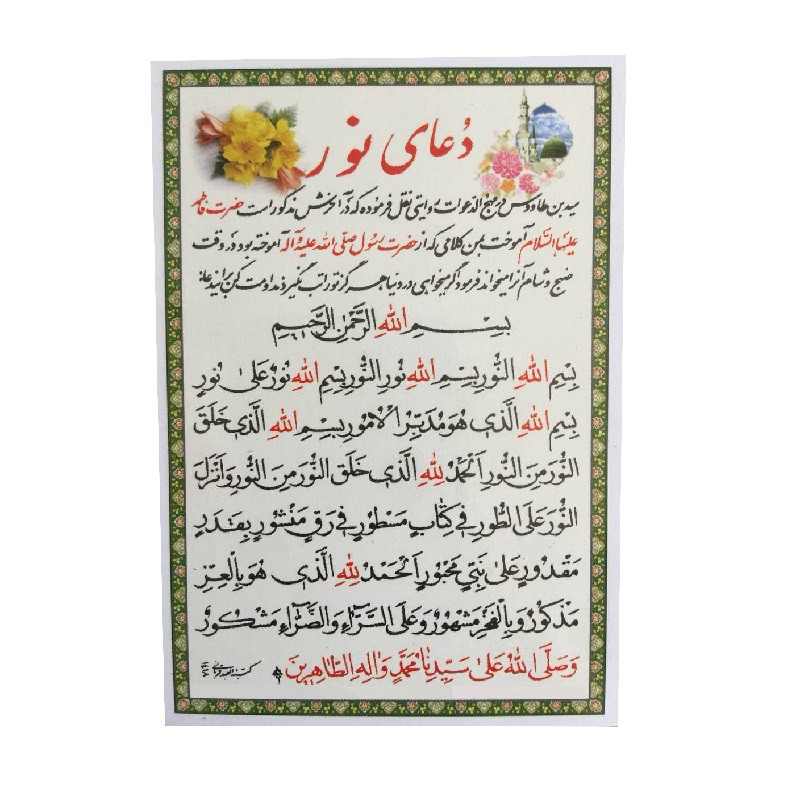 دُعای نور
سید بن طاووس در مهج الدعوات روایتی نقل فرموده که در آخرش مذکور است حضرت فاطمه
علیها السّلام آموخت بمن کلامی که از حضرت رسول صلّی الله علیه و آله آموخته بود در وقت
صبح و شام آنرا میخواند فرمود اگر میخواهی در دنیا هرگز تو را تب نگیرد مداومت کن بر
بِسْمِ اللهِ الرَّحْمٰنِ الرَّحِیمِ
بِسْمِ اللهِ النُّورِ بِسْمِ اللهِ نُورِ النُّورِ بِسْمِ اللهِ نُورٌ عَلیٰ نُورٍ
بِسْمِ اللهِ الَّذی هُوَ مُدَبِّرُ الْاُمُورِ بِسْمِ اللهِ الَّذی خَلَقَ
النُّورَ مِنَ النُّورِ اَلْحَمْدُ لِلّٰهِ الَّذی خَلَقَ النُّورَ مِنَ النُّورِ وَاَنْزَلَ
النُّورَ عَلَی الطُّورِ فی کِتابٍ مَسْطُورٍ فی رَقٍّ مَنْشُورٍ بِقَدَرٍ
مَقْدُورٍ عَلیٰ نَبِیٍّ مَحْبُورٍ اَلْحَمْدُ لِلّٰهِ الَّذی هُوَ بِالْعِزِّ
مَذْکُورٌ وَ بِالْفَخْرِ مَشْهُورٌ وَ عَلَی السَّرّاءِ وَ الضَّرّاءِ مَشْکُورٌ
وَصَلَّی اللهُ عَلیٰ سَیِّدِنا مُحَمَّدٍ وَ الِهِ الطّاهِرینَ